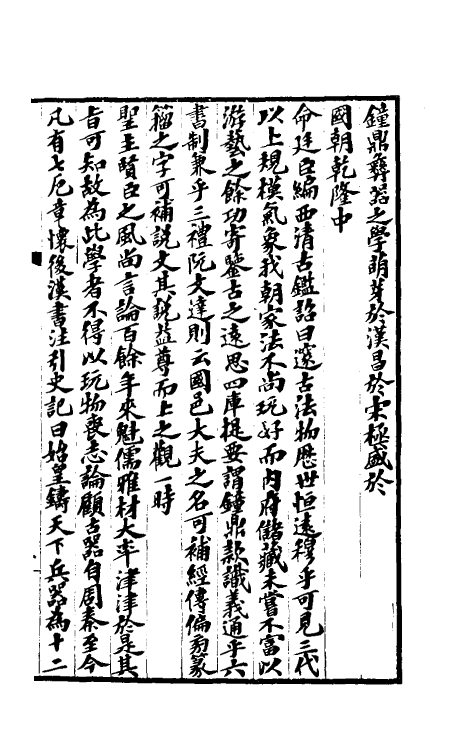 鐘鼎彝器之學萌芽於漢昌於宋極盛於
國朝乾隆中
命廷臣編西清古鑑諭曰邃古法物歷世恒遠穆乎可見三代
以上規模氣象我朝家法不尚玩好而內府儲藏未嘗不富以
游藝之餘功寄鑒古之遠思四庫提要謂鐘鼎款識義通乎六
書制兼乎三禮阮文達則云國邑大夫之名可補經傳偏旁篆
籀之字可補說文其說益尊而上之觀一時
聖主賢臣之風尚言論百餘年來魁儒雅材大率津津於是其
旨可知故為此學者不得以玩物喪志論顧古器自周秦至今
凡有七厄章懷後漢書注引史記曰始皇鑄天下兵器為十二